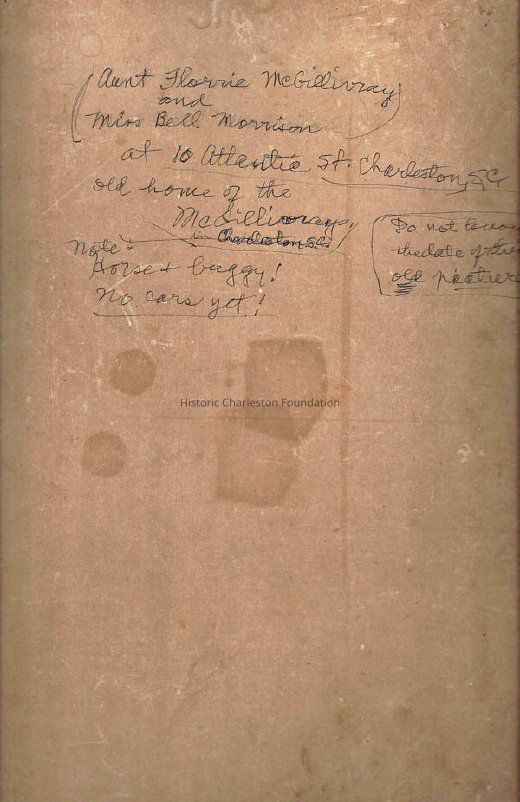 (Aunt Florrie McGillivray)
and
Miss Bell Morrison
at 10 Atlantic St. Charleston, SC
old home of the
McGillivrays,
in Charleston S.C.
Note:
Horse & buggy!
No cars yet!
Do not know
the date of this
old picture
Historic Charleston Foundation